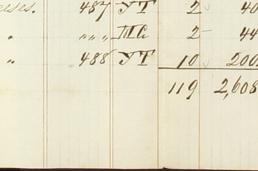 487 УТ 2 40
" " " ТС 2 44
" 488 УТ 10 200
119 2,608